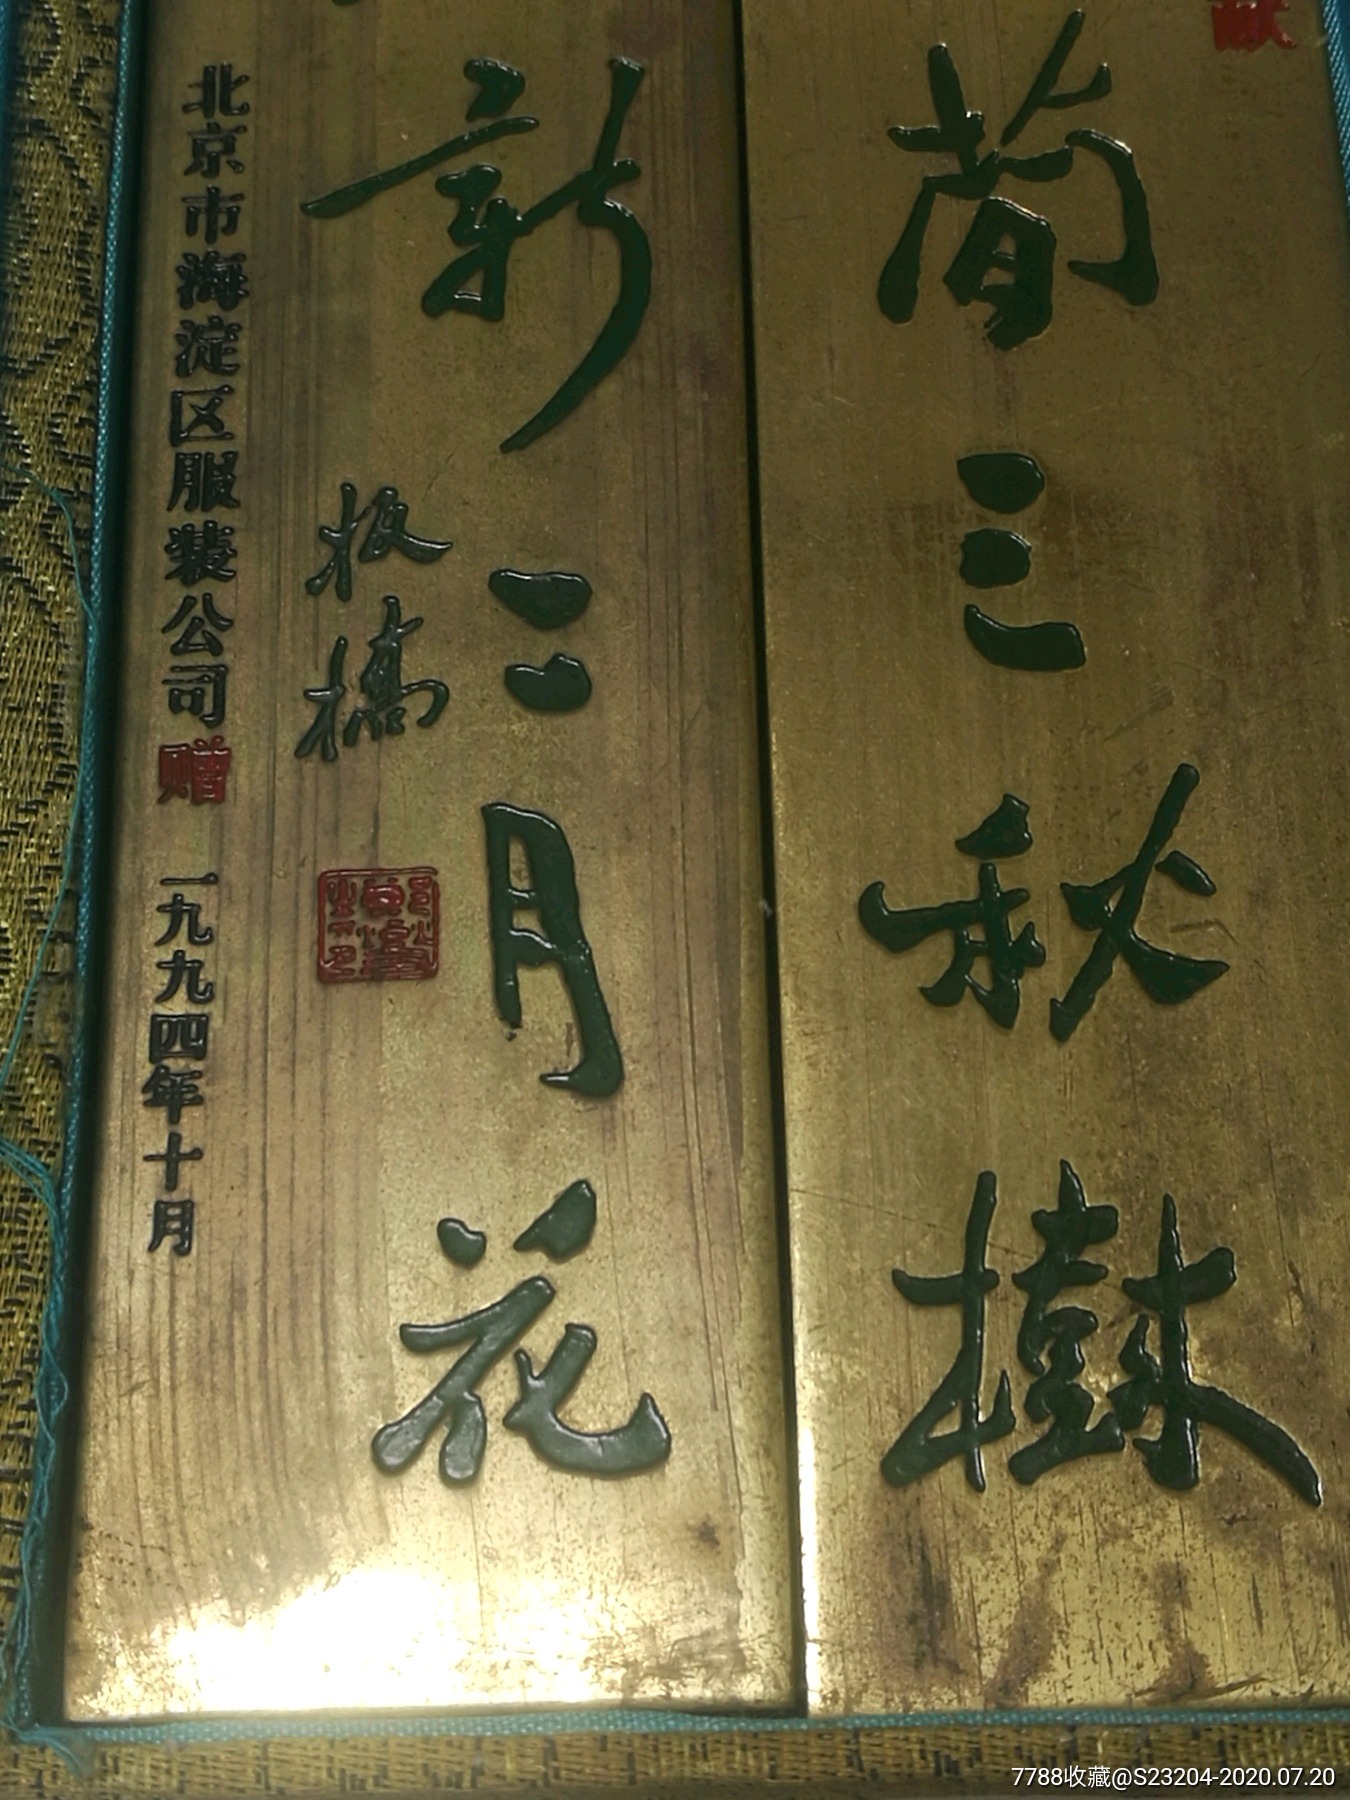 献
简三秋樹
新二月花
板橋
北京市海淀区服装公司赠
一九九四年十月
7788收藏@S23204-2020.07.20